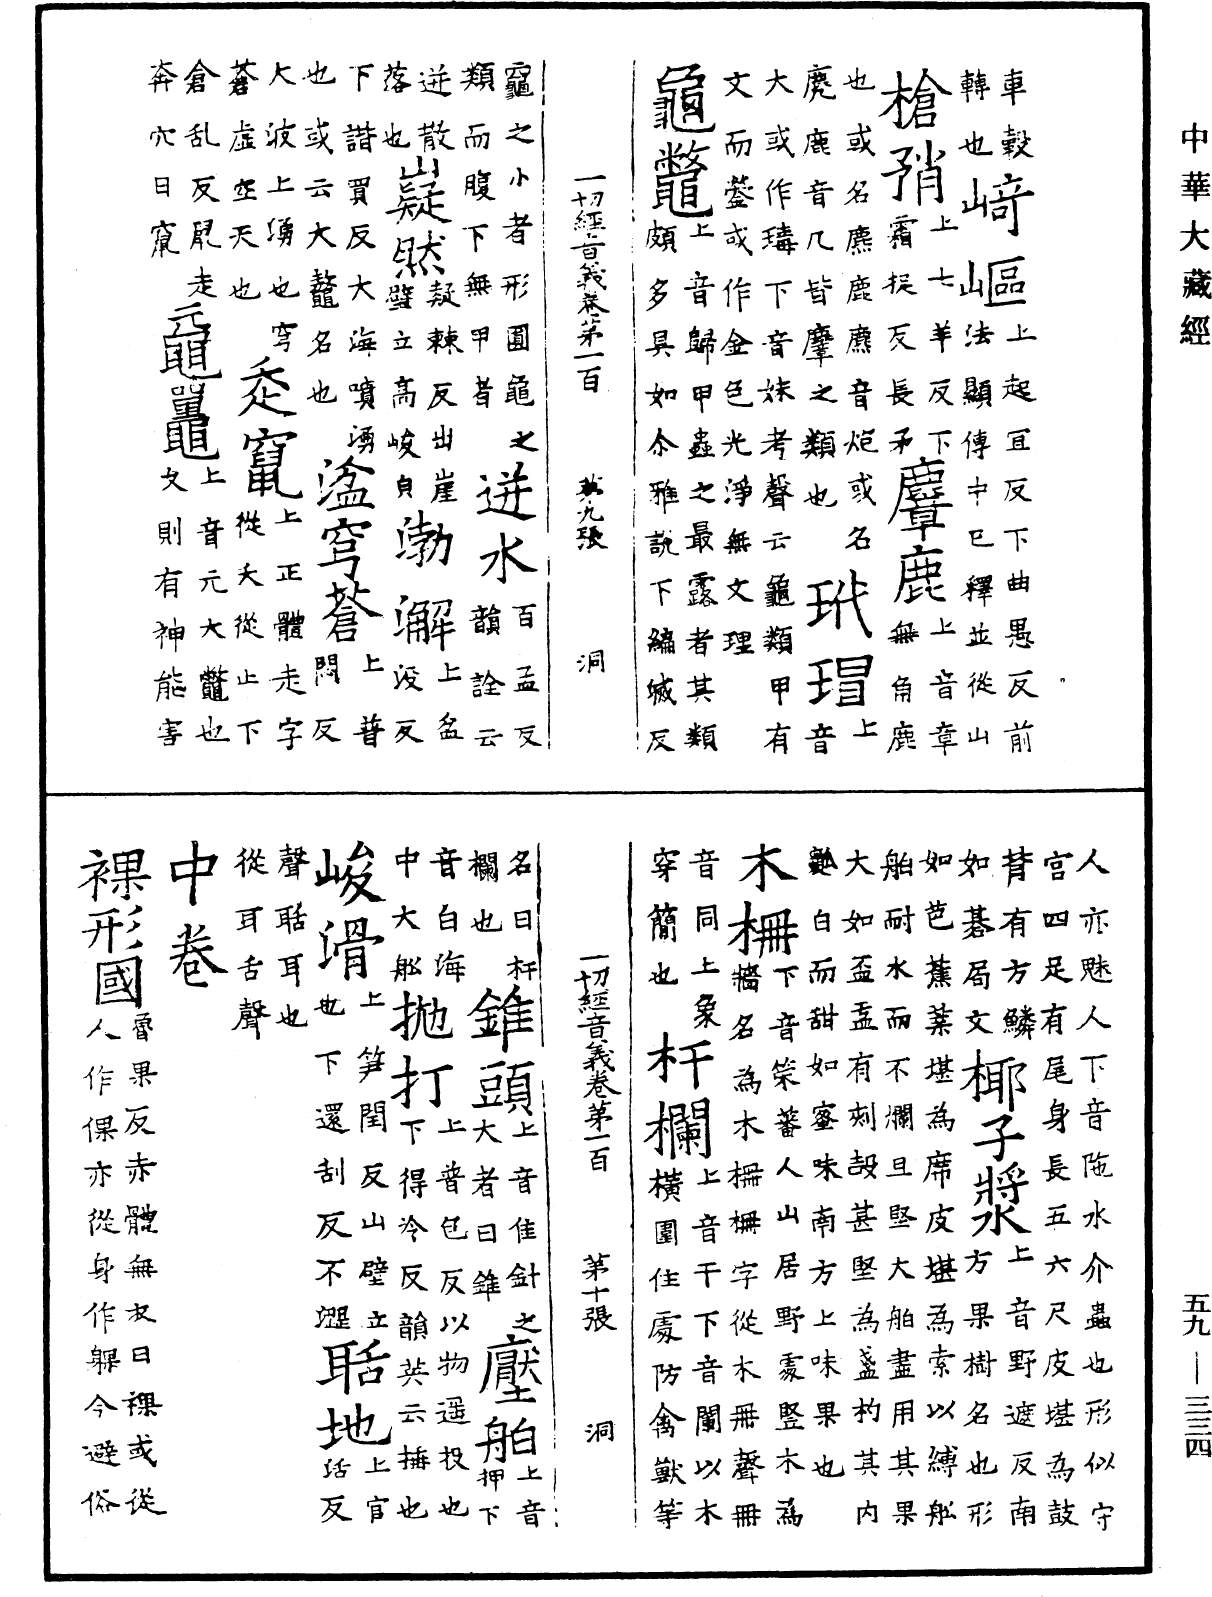 中華大藏經
車轂
轉也
﨑嶇
上起冝反下曲愚反前
法顯傳中已釋並從山
槍矟
上七羊反下
霜捉反長矛
麞鹿
上音章
無角鹿
也或名麃鹿麃音炮或名
麂鹿音几皆麞之類也
玳瑁
上
音
大或作瑇下音妹考聲云龜類甲有
文而瑩或作金色光淨無文理
龜鼈
上音歸甲蟲之最露者其類
頗多具如尒雅說下編㓕反
一切經音義卷第一百 第九張 洞
龜之小者形圓龜之
類而腹下無甲者
迸水
百孟反
韻詮云
迸散
落也
嶷然
疑棘反出崖
壁立高峻皃
渤澥
上盆
沒反
下諧買反大海噴湧
也或云大鼇名也
溢穹蒼
上普
悶反
大波上湧也穹
蒼虛空天也
走竄
上正體走字
從夭從止下
倉乱反鼠走
奔穴曰竄
黿鼉
上音元大鼈也
文則有神能害
人亦魅人下音陁水介蟲也形似守
宮四足有尾身長五六尺皮堪為鼓
背有方鱗
如碁局文
椰子漿
上音野遮反南
方果樹名也形
如芭蕉葉堪為席皮堪為索以縛舩
舶耐水而不爛旦堅大舶盡用其果
大如盃盂有刻㱿甚堅為盞杓其内
瓤白而甜如蜜味南方上味果也
木柵
下音䇲蕃人山居野處竪木為
墻名為木柵柵字從木冊聲冊
音同上象
穿簡也
杆欄
上音干下音闌以木
橫圍住處防禽獸等
一切經音義卷第一百 第十張 洞
名曰杆
欄也
錐頭
上音隹針之
大者曰錐
壓舶
上音
押下
音白海
中大舩
拋打
上普包反以物遥投也
下得冷反韻英云捶也
峻滑
上笋閏反山壁立
也下還刮反不澀
聒地
上官
活反
聲聒耳也
從耳舌聲
中卷
裸形國
魯果反赤體無衣曰裸或從
人作倮亦從身作躶今避俗
五九—三三四